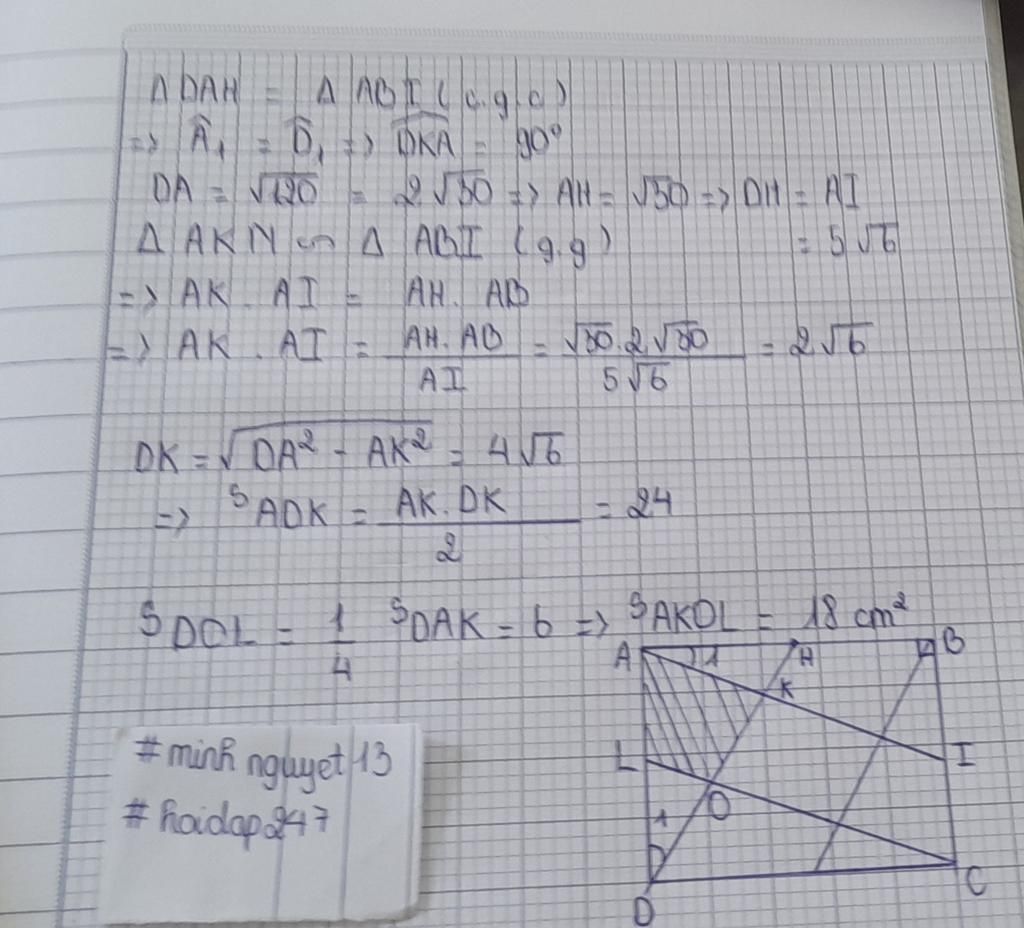 Δ DAH = Δ ABI (c.g.c)
=> Â₁ = D̂₁ => D̂KA = 90°
DA = √120 = 2√30 => AH = √30 => DH = AI
Δ AKN ∽ Δ ABI (g.g) = 5√6
=> AK . AI = AH . AB
=> AK . AI = AH . AB / AI = √30 . 2√30 / 5√6 = 2√6
DK = √DA² - AK² = 4√6
=> S ADK = AK . DK / 2 = 24
S DOL = 1/4 S DAK = 6 => S AKOL = 18 cm²
A 1 H B
K
L I
O
1
D C
#minh nguyet 13
#hoidap247